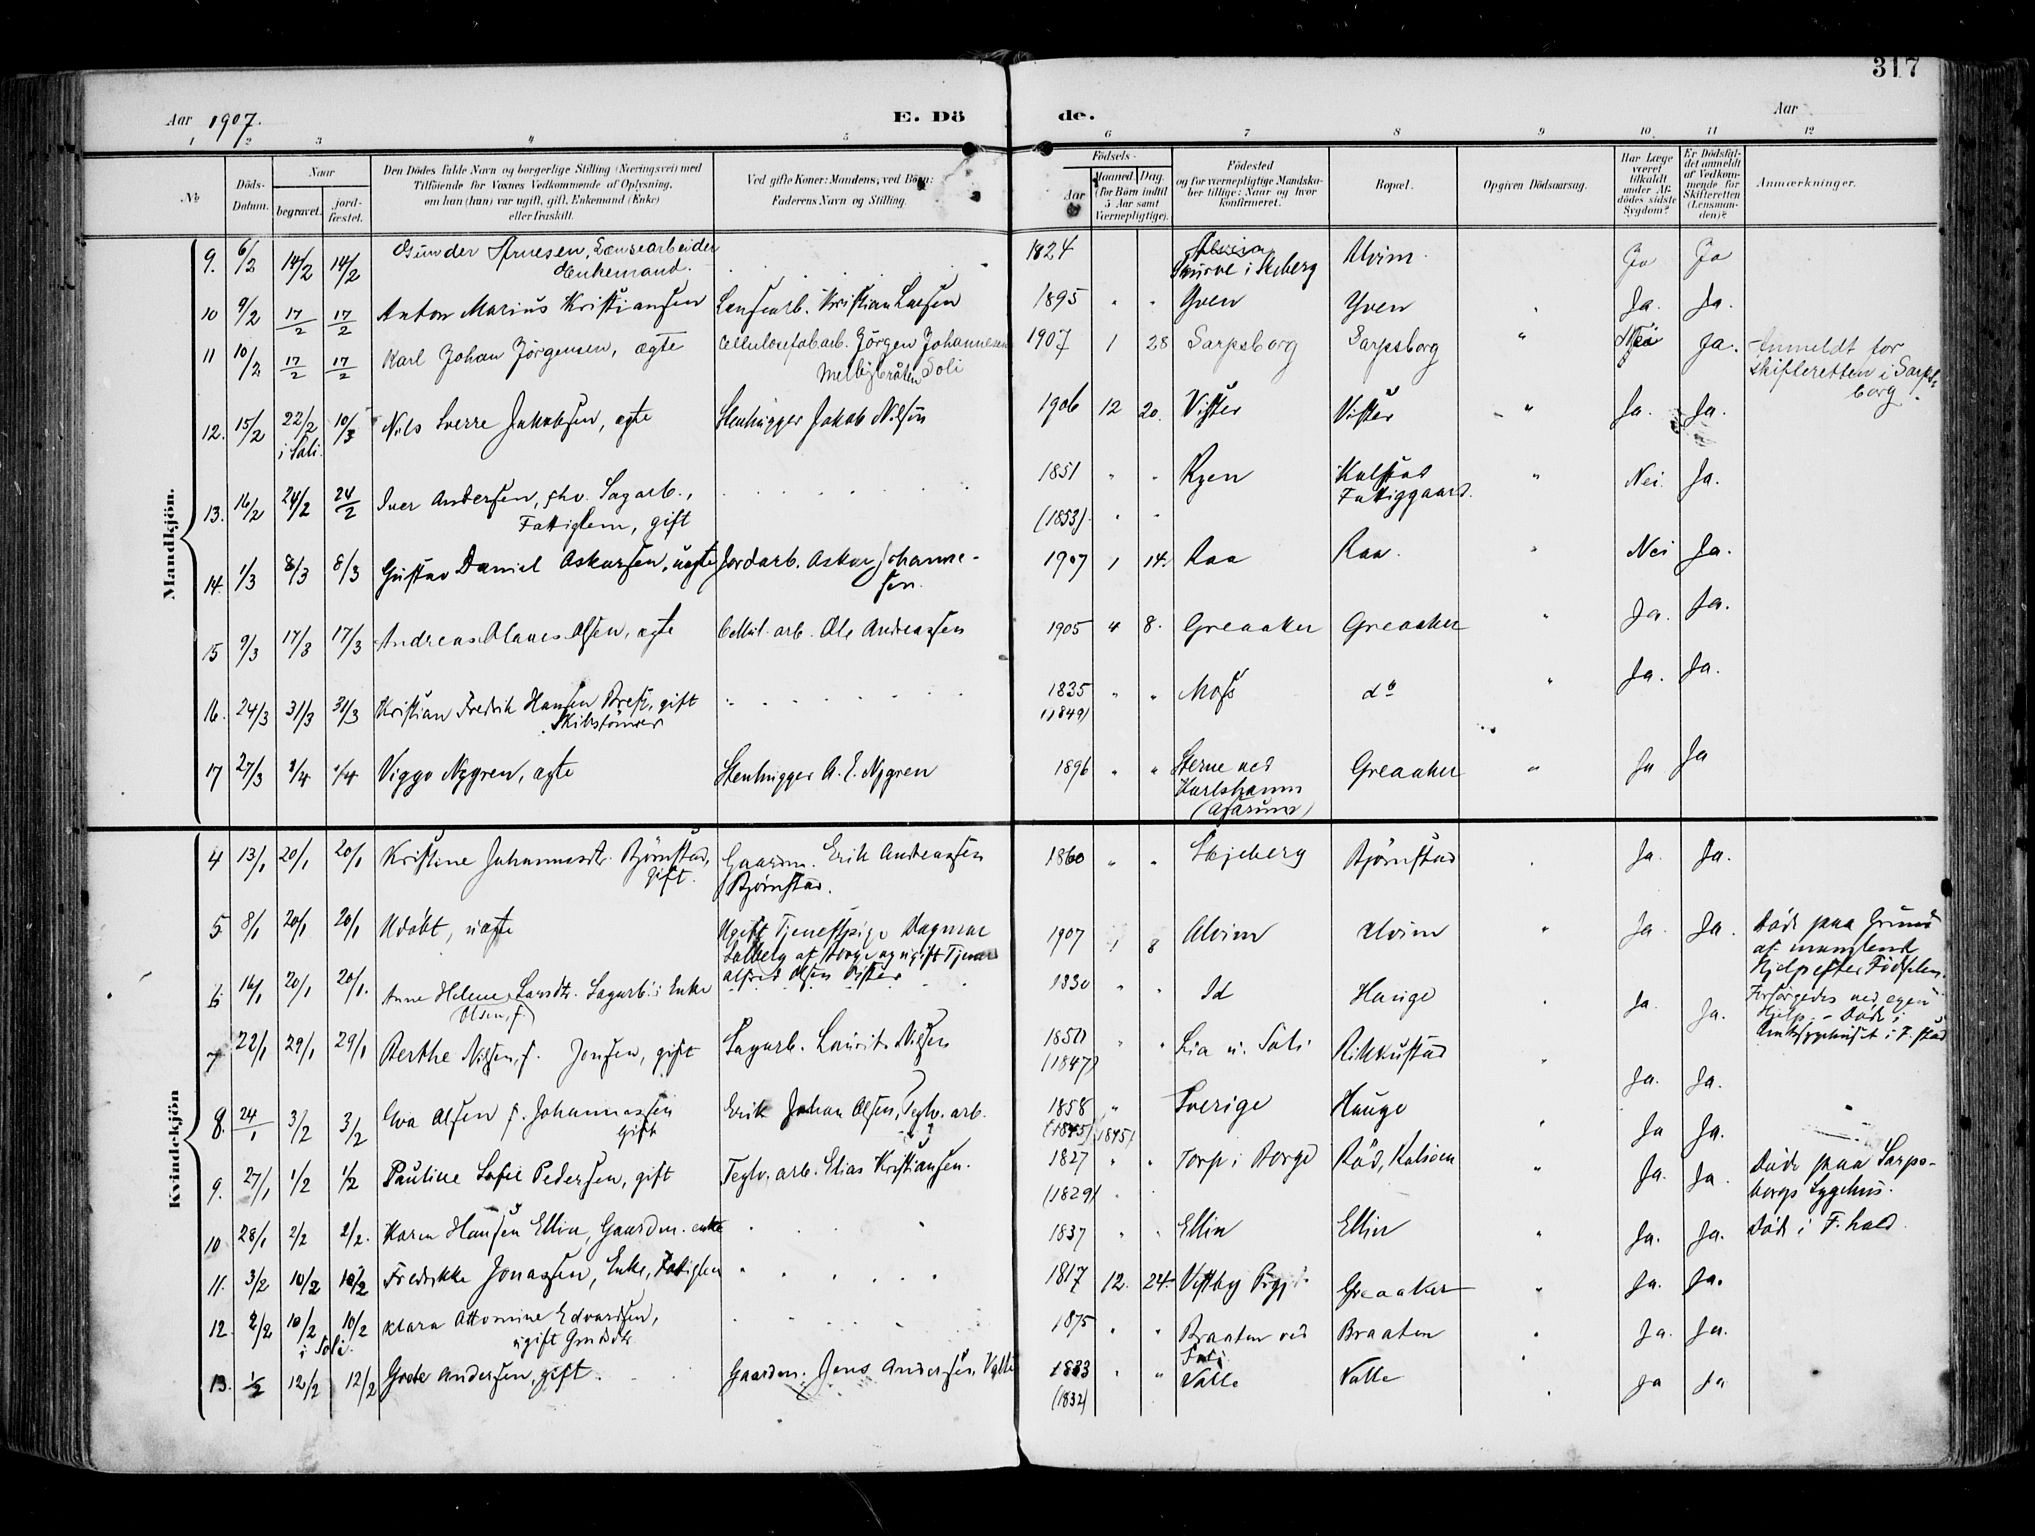 317
Aar 1907.
E. Dö
de.
Aar
1 2 3 4 5 6 7 8 9 10 11 12
No
Döds-Datum.
Naar
begravet.
jord-fæstet.
Den Dödes fulde Navn og borgerlige Stilling (Næringsvei) med
Tilföiende for Voxnes Vedkommende af Oplysning.
om han (hun) var ugift, gift, Enkemand (Enke)
eller fraskilt.
Ved gifte Koner: Mandens, ved Börn:
Faderens Navn og Stilling.
Födsels-
Aar
Maaned. Dag.
(for Börn indtil
5 Aar samt
Værnepligtige).
Födested
og for værnepligtige Mandska-
ber tillige: Naar og hvor
konfirmeret.
Bopæl.
Opgiven Dödsaarsag.
Har Læge
været
tilkaldt
under Af-
dödes sidste
Sygdom?
Er Dödsfal-
det anmeldt
af Vedkom-
mende for
Skifteretten
(Lensman-
den)?
Anmærkninger.
Mandkjön.
9. 6/2 14/2 14/2 Gunder Arnesen, Lænsearbeider 1824 Alvim Alvim. Ja Ja
Enkemand. i Skeberg
10 9/2 17/2 17/2 Anton Marius Kristiansen Lensearb. Kristian Larsen 1895 " " Yven Yven Ja. Ja.
11 10/2 17/2 17/2 Karl Johan Jörgensen, ægte Cellulosefab.arb. Jörgen Johannesen 1907 1 28 Sarpsborg Sarpsborg " Nei Ja. Anmeldt for
Melbybråten Soli skifteretten i Sarps-
borg.
12. 15/2 22/2 10/3 Nils Sverre Jakobsen, ægte Stenhugger Jakob Nilsen 1906 12 20. Vister Vister " Ja. Ja.
i Soli.
13. 16/2 24/2 24/2 Iver Andersen, fhv. Sagarb., 1851 " " Ryen Kalstad " Nei Ja.
Fattiglem, gift (1853) " " Fattiggaard.
14. 1/3 8/3 8/3 Gustav Daniel Oskarsen, uægte Jordarb. Oskar Johanne- 1907 1 14. Raa Raa. " Nei Ja.
sen.
15 9/3 17/3 17/3 Andreas Olaves Olsen, ægte Cellul. arb. Ole Andreassen 1905 4 8. Greaaker Greaaker " Ja. Ja.
16. 24/3 31/3 31/3 Kristian Fredrik Hansen Brest, gift " 1835 " " Moss do " Ja. Ja.
Skibstömrer (1849)
17 27/3 1/4 1/4 Viggo Nygren, ægte Stenhugger A. E. Nygren 1896 " " Sterne ved Greaaker " Ja Ja
Karlshamn
(Asarum)
Kvindekjön
4 13/1 20/1 20/1 Kristine Johannesdtr. Björnstad, Gaardm. Erik Andreassen 1860 " " Skjeberg Björnstad Ja. Ja.
gift. Björnstad.
5 8/1 20/1 20/1 Udöbt, uægte Ugift Tjenestpige Dagmar 1907 1 8 Alvim Alvim " Ja Ja. Död paa Grund
Solberg af Borge og ugift Tjener af manglende
Alfred Olsen Vister Hjelp efter Födselen.
6 16/1 20/1 20/1. Anne Helene Larsdtr. Sagarb.s Enke 1830 " " Id Hauge Ja. Ja. Forsörgedes ved egen
Olsen, f. Hjelp. - Död i
7 22/1 29/1 29/1 Berthe Nilsen, f. Jonsen, gift Sagarb. Laurits Nilsen 1850 " " Lia v. Soli Rikkustad " Ja. Ja. Amtssygehuset i F.stad
(1847)
8. 24/1 3/2 3/2 Eva Olsen f. Johannessen Erik Johan Olsen, Teglv. arb. 1858 " Sverige Hauge Ja Ja.
gift (1845) 1845)
9. 27/1 1/2 1/2 Pauline Sofie Pedersen, gift Teglv. arb. Elias Kristiansen. 1827 " " Torp i Borge Röd, Kalsöen " Ja. Ja. Död paa Sarps-
(1829) " borgs Sygehus.
10 28/1 2/2 2/2. Karen Hansen Ellin, Gaardm. enke 1837 " " Ellin Ellin " Ja. Ja. Död i F. hald.
11. 3/2 10/2 10/2 Fredrikke Jonassen, Enke, Fattiglem " 1817 12. 24. Vestby Greaaker " Ja. Ja.
12. 2/2 10/2 10/2 Klara Ottomine Edvardsen, 1875 " " Braaten ved Braaten Ja. Ja.
i Soli. ugift Grdsdtr. Soli
13. 1/2 12/2 12/2 Grete Andersen, gift. Gaardm. Jens Andersen, Valle 1833 " " Valle Valle " Ja Ja
(1832)